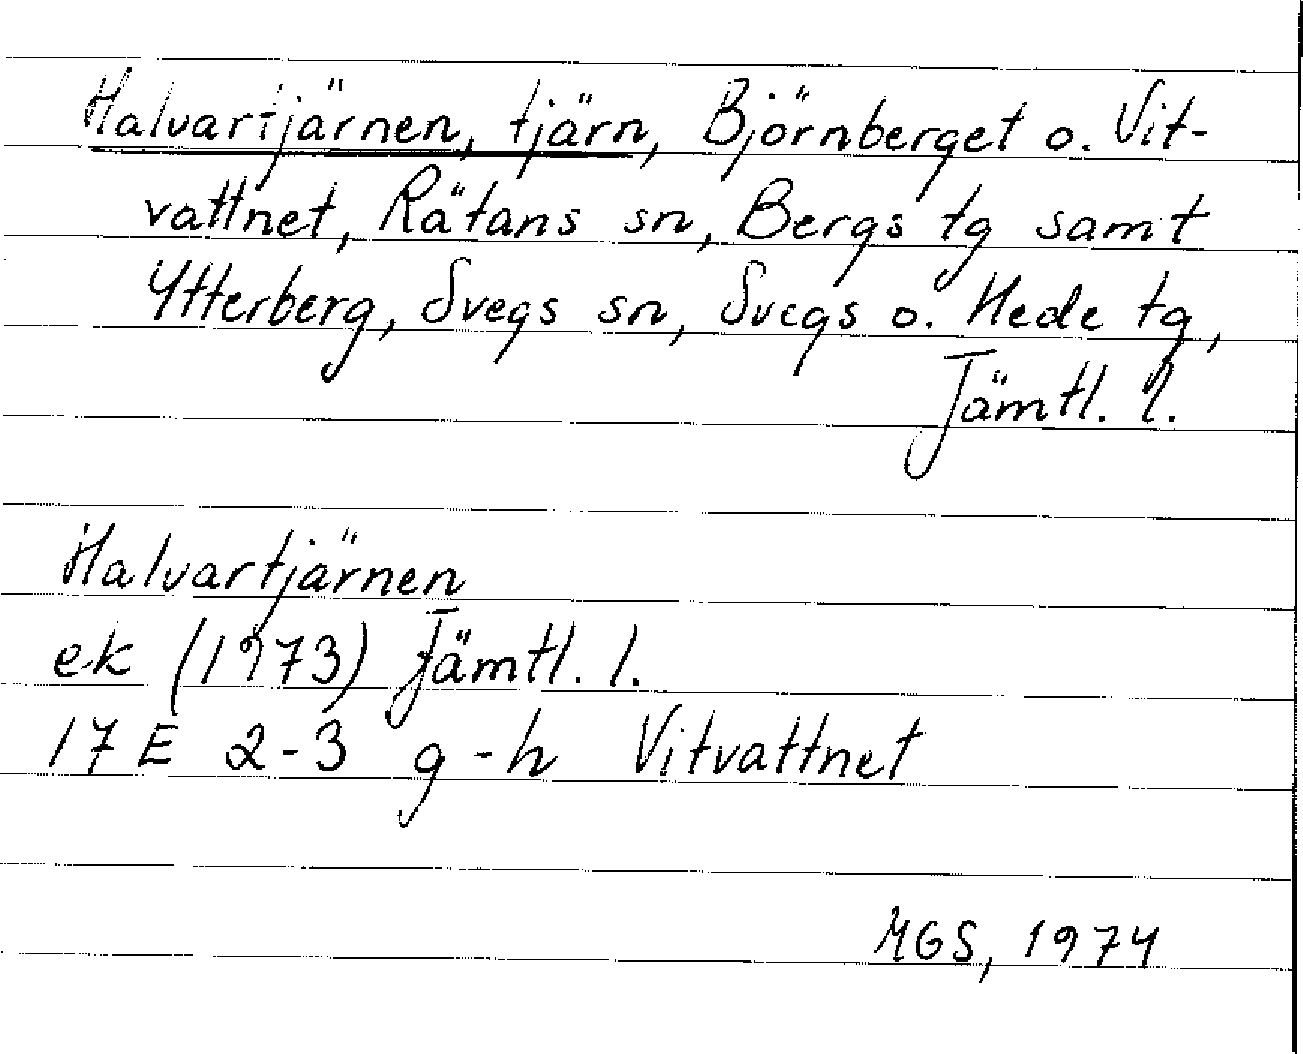 Halvartjärnen, tjärn, Björnberget o. Vit-
vattnet, Rätans sn, Bergs tg samt
Ytterberg, Svegs sn, Svegs o. Hede tg,
Jämtl. l.
Halvartjärnen
ek (1973) Jämtl. l.
17 E 2-3 g-h Vitvattnet
MGS, 1974